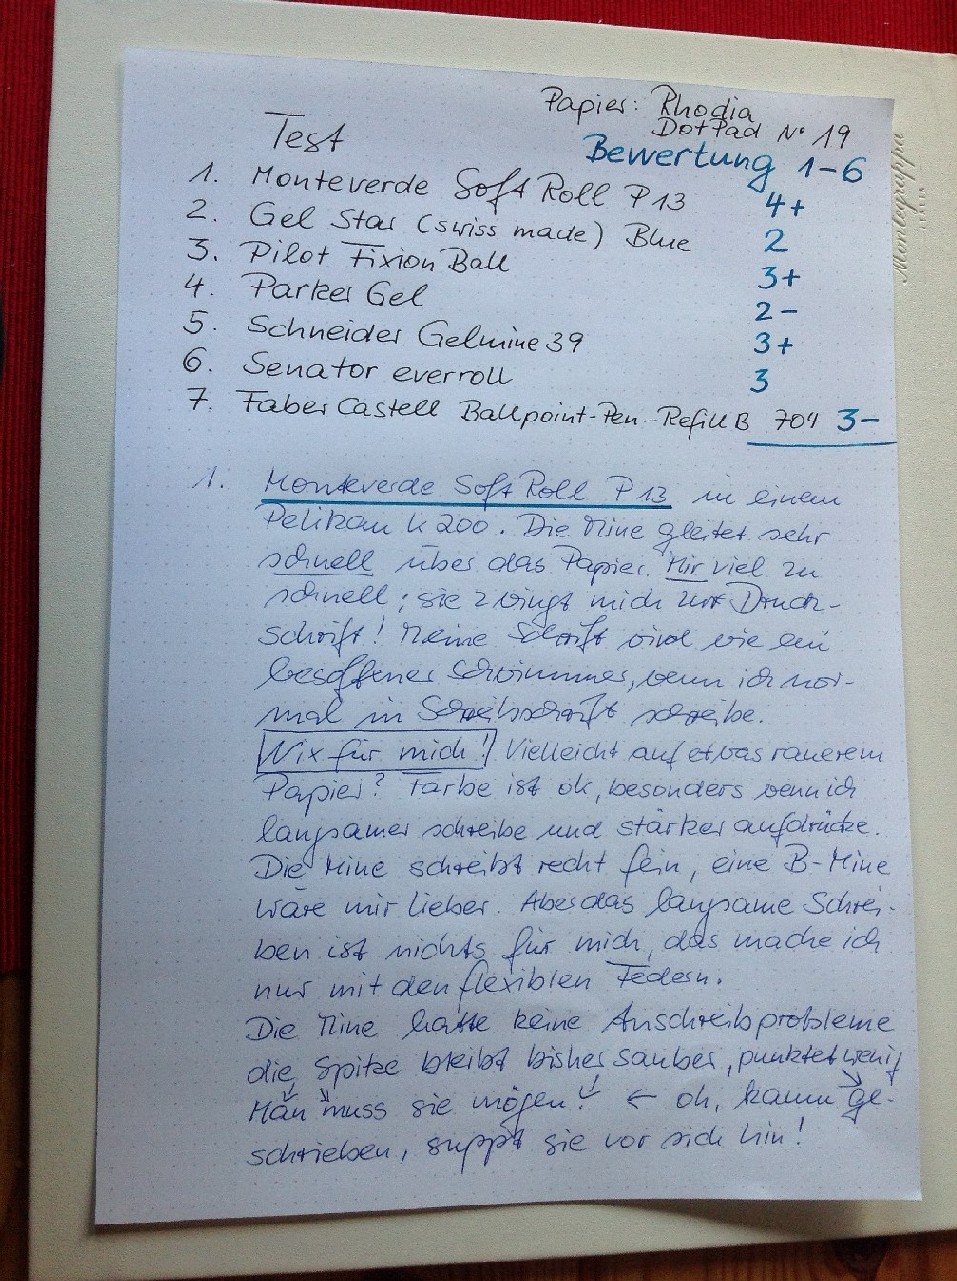 Papier: Rhodia
DotPad N° 19
Test
Bewertung 1-6
1. Monteverde Soft Roll P13 4+
2. Gel Star (swiss made) Blue 2
3. Pilot Fixion Ball 3+
4. Parker Gel 2-
5. Schneider Gelmine 39 3+
6. Senator everroll 3
7. Faber Castell Ballpoint-Pen Refill B 704 3-
1. Monteverde Soft Roll P13 in einem
Pelikan K200. Die Mine gleitet sehr
schnell über das Papier. Mir viel zu
schnell; sie zwingt mich zur Druck-
schrift! Meine Schrift wird wie ein
besoffener Schwimmer, wenn ich nor-
mal in Schreibschrift schreibe.
Nix für mich! Vielleicht auf etwas rauerem
Papier? Farbe ist ok, besonders wenn ich
langsamer schreibe und stärker aufdrücke.
Die Mine schreibt recht fein, eine B-Mine
wäre mir lieber. Aber das langsame Schrei-
ben ist nichts für mich, das mache ich
nur mit den flexiblen Federn.
Die Mine hatte keine Anschreibprobleme
die Spitze bleibt bisher sauber, punktet wenig
Man muss sie mögen! ← oh, kaum ge-
schrieben, suppt sie vor sich hin!